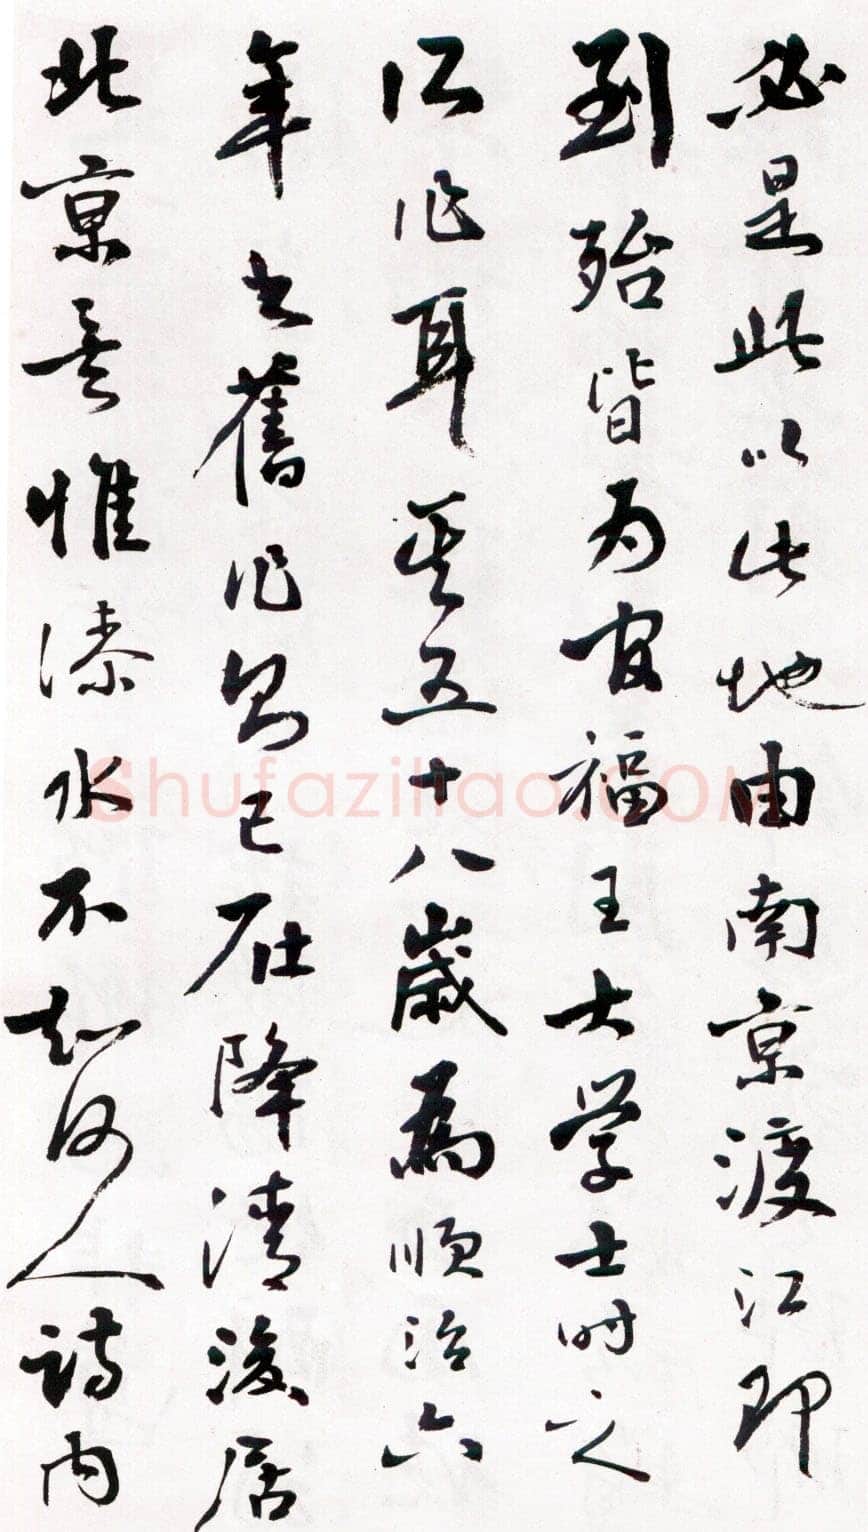 必是此以此地由南京渡江即
到殆皆为官福王大学士时之
所作耳其五十八歲為順治六
年書舊作則已在降清後居
北京矣惟溱水不知何人詩内
Shufaziliao.COM